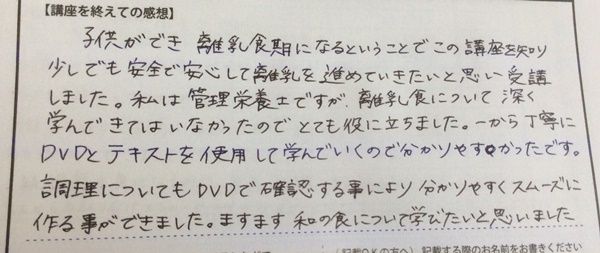 【講座を終えての感想】
子供ができ 離乳食期になるということでこの講座を知り
少しでも安全で安心して離乳を進めていきたいと思い受講
しました。私は管理栄養士ですが、離乳食について深く
学んできてはいなかったのでとても役に立ちました。一から丁寧に
DVDとテキストを使用して学んでいくので分かりやすかったです。
調理についてもDVDで確認する事により分かりやすくスムーズに
作る事ができました。ますます和の食について学びたいと思いました
(記載OKの方へ)記載する際のお名前をお書きください